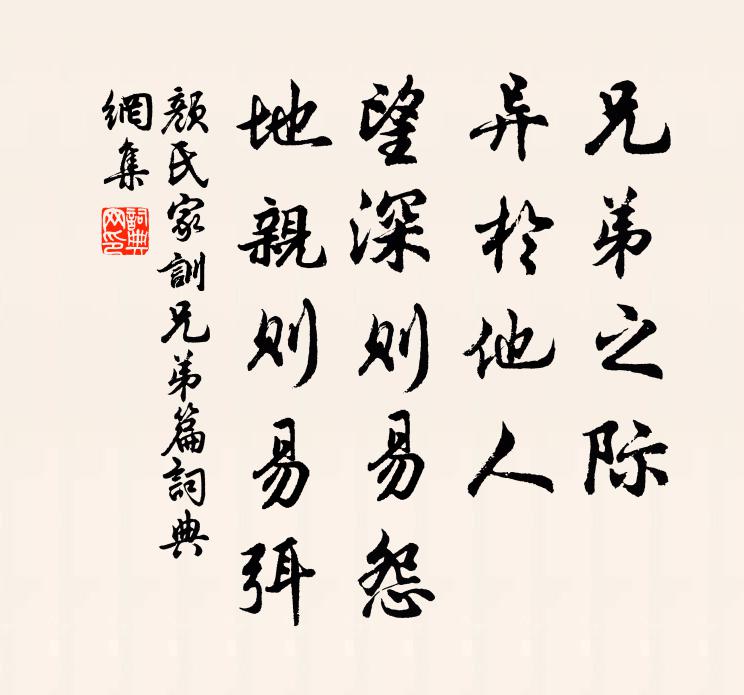 兄弟之际
异於他人
望深则易怨
地親则易弭
顏氏家訓兄弟篇詞典
網集
詞典
网印